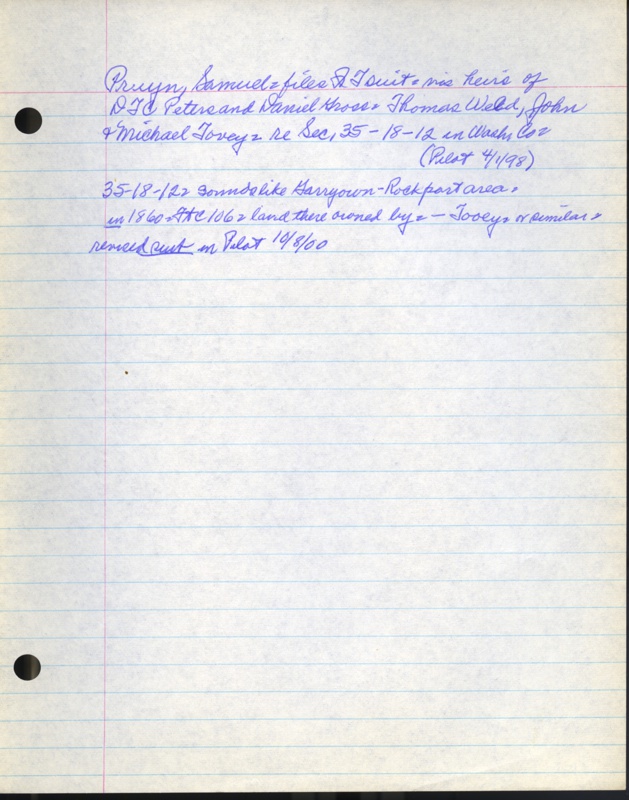 Pruyn, Samuel = files suit = vis heirs of
D T C Peters and Daniel Gross = Thomas Weld, John
& Michael Tovey = re Sec, 35-18-12 in Wash Co =
(Pilot 4/1/98)
35-18-12 = sounds like Garryown-Rockport area =
in 1860 = 106 = land there owned by = — Tovey = or similar =
revised suit in Pilot 10/8/00